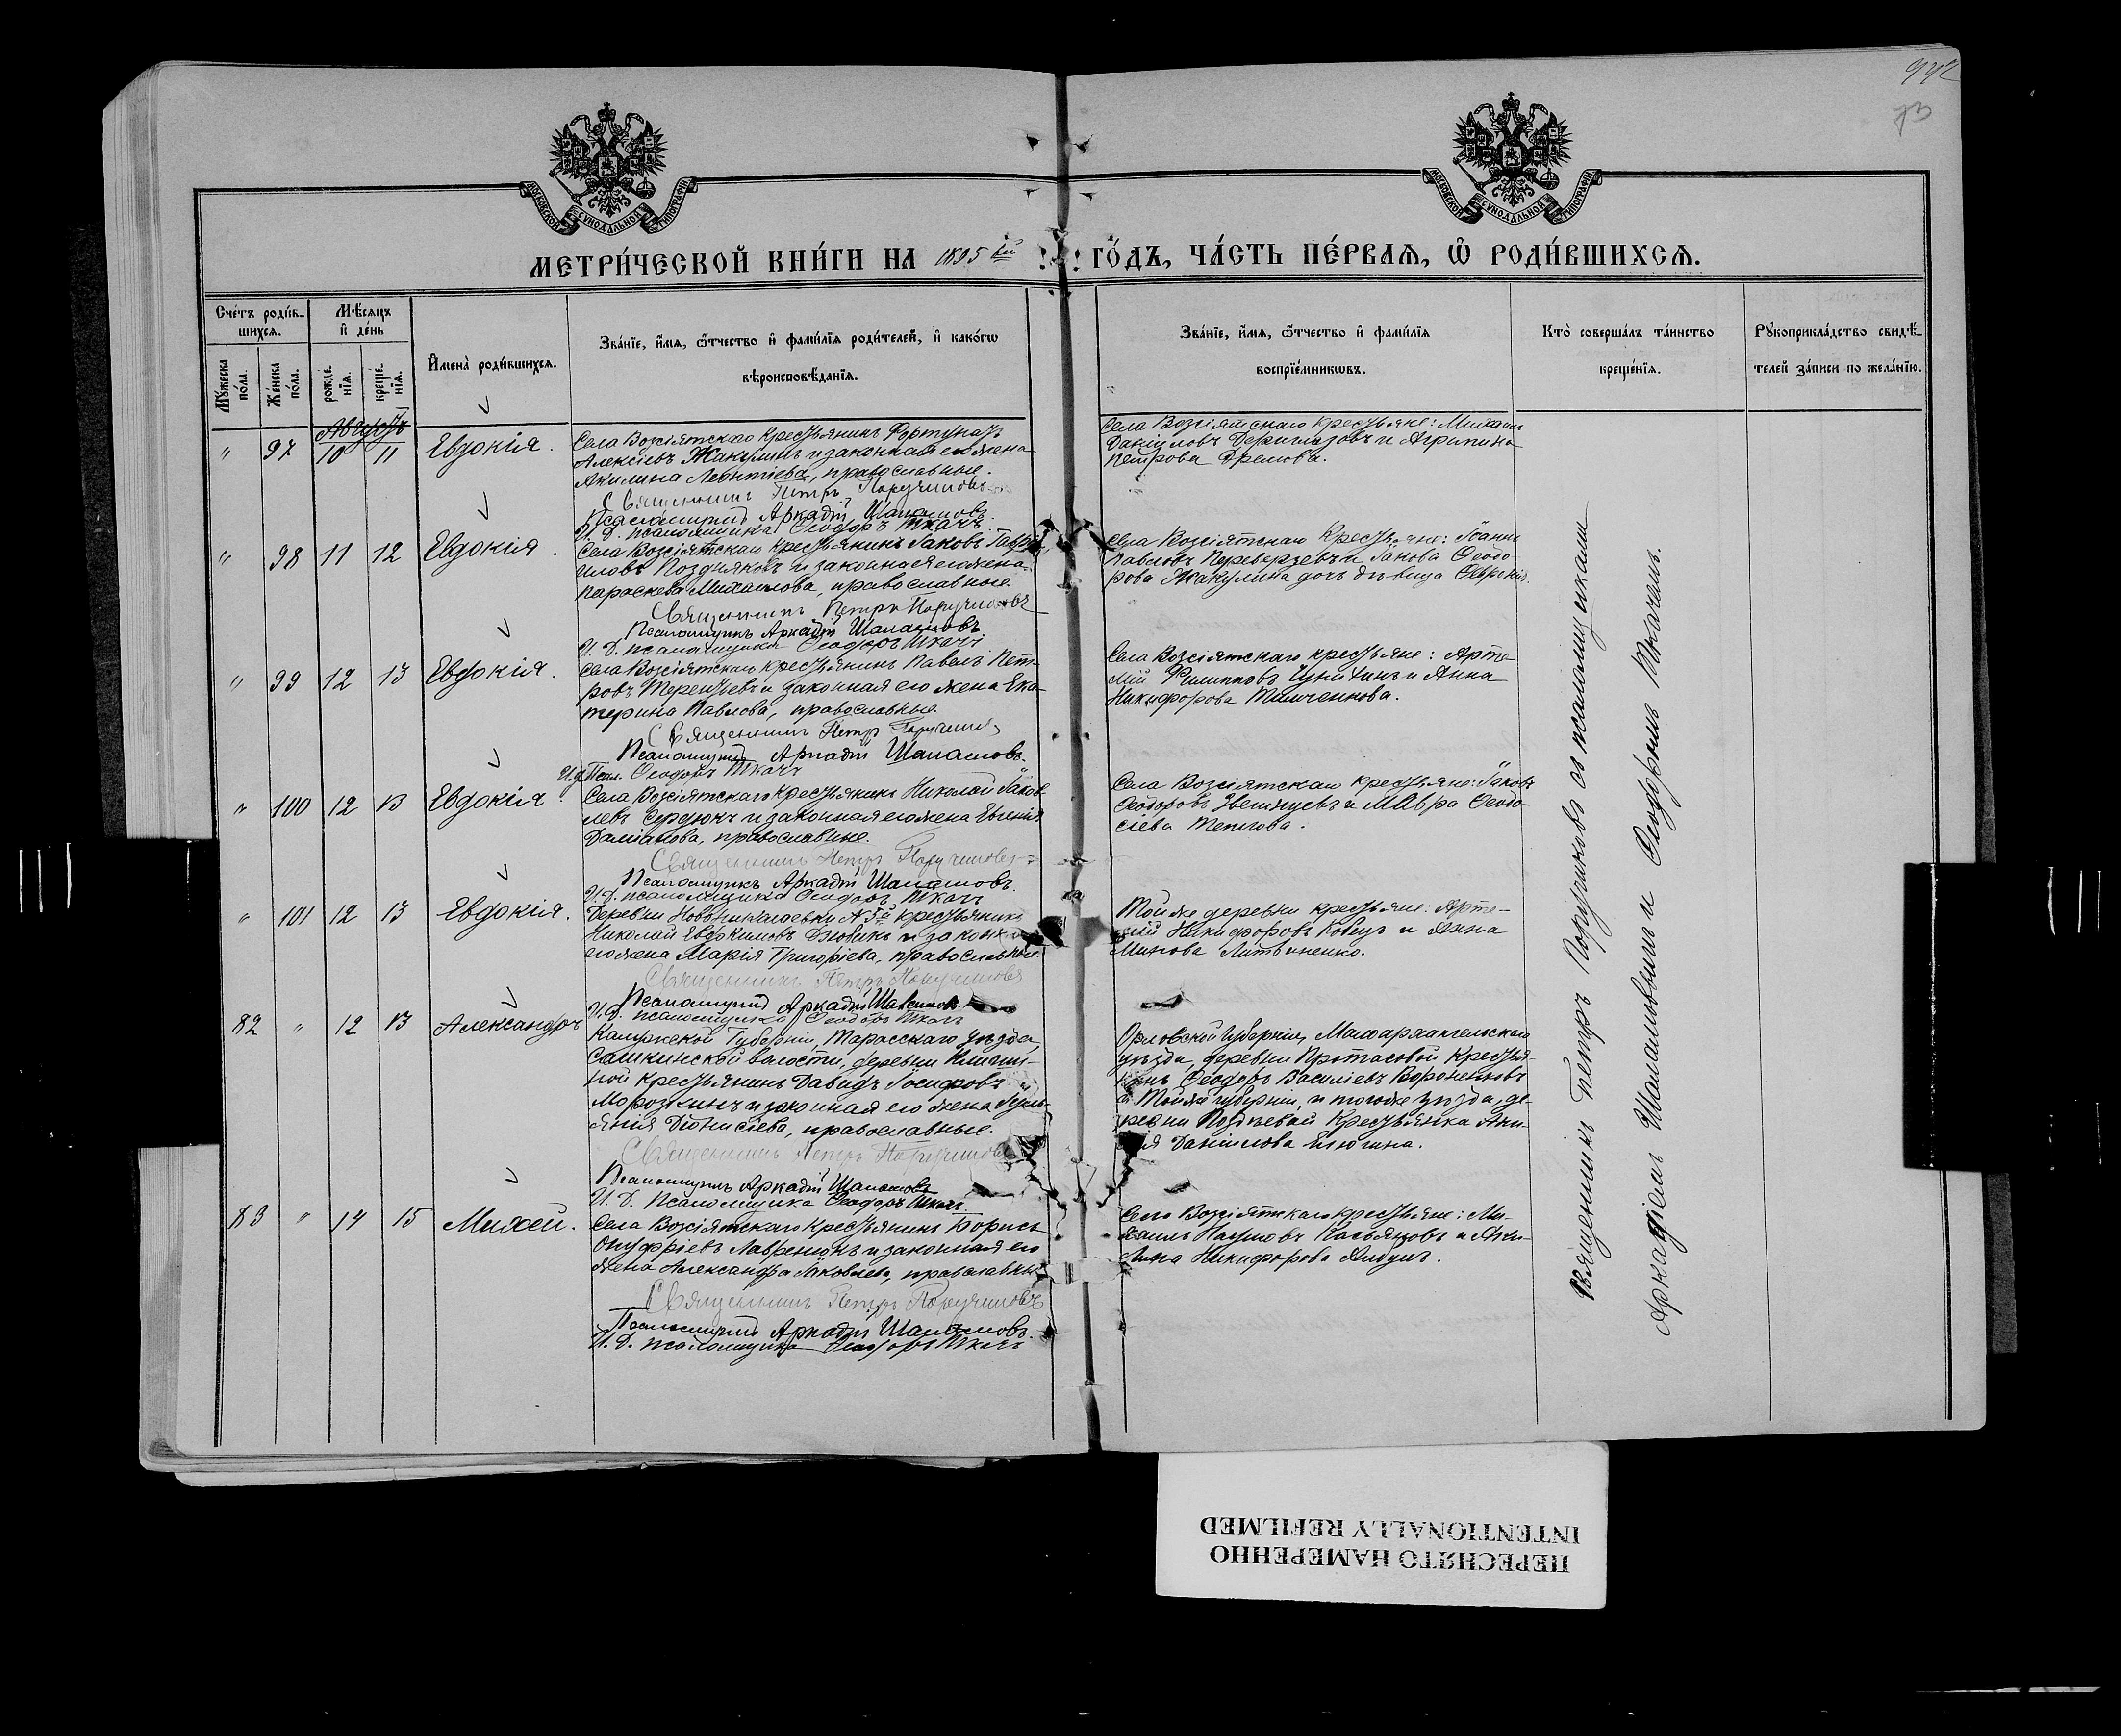 992
73
МОСКОВСКОЙ СѴНОДАЛЬНОЙ ТИПОГРАФІИ
МОСКОВСКОЙ СѴНОДАЛЬНОЙ ТИПОГРАФІИ
МЕТРИ́ЧЕСКОЙ КНИ́ГИ НА 1895й ГО́ДЪ, ЧА́СТЬ ПЕ́РВАЯ, Ѽ РОДИ́ВШИХСЯ.
Сче́тъ роди́в-
шихся.
Мѣ́сяцъ
и҆ де́нь
Мꙋ́жеска
по́ла.
Же́нска
по́ла.
рожде́-
нїя.
креще́-
нїя.
И҆мена̀ роди́вшихся.
Зва́нїе, и҆́мя, ѻ҆́тчество и҆ фами́лїя роди́телей, и҆ како́гѡ
вѣроисповѣ́данїя.
Зва́нїе, и҆́мя, ѻ҆́тчество и҆ фами́лїя
воспрїе́мникѡвъ.
Кто̀ соверша́лъ та́инство
креще́нїя.
Рꙋкоприкла́дство свидѣ́-
телей за́писи по жела́нїю.
Августъ
" 97 10 11 Евдокія.
Села Возсіятскаго крестьянинъ Фортунатъ
Алексіевъ Жакулинъ и законная его жена
Акилина Леонтіева, православные.
Священникъ Петръ Поручиковъ
Псаломщикъ Аркадій Шаламовъ.
И. Д. псаломщика Ѳеодоръ Ткачъ.
Села Возсіятскаго крестьяне: Михаилъ
Даніиловъ Деригизовъ и Агрипина
Петрова Дремова.
" 98 11 12 Евдокія.
Села Возсіятскаго крестьянинъ Іаковъ Гаврі-
иловъ Поздняковъ и законная его жена
Параскева Михаилова, православные
Священникъ Петръ Поручиковъ
Псаломщикъ Аркадій Шаламовъ
И. Д. псаломщика Ѳеодоръ Ткачъ
Села Возсіятскаго крестьяне: Іоаннъ
Павловъ Переверзевъ и Іакова Ѳеодо-
рова Жакулина дочь дѣвица Евфросинія
" 99 12 13 Евдокія.
Села Возсіятскаго крестьянинъ Павелъ Пет-
ровъ Терентьевъ и законная его жена Ека-
терина Павлова, православные.
Священникъ Петръ Поручиковъ
Псаломщикъ Аркадій Шаламовъ.
И. д. Псал. Ѳеодоръ Ткачъ
Села Возсіятскаго крестьяне: Арте-
мій Филипповъ и Анна
Никифорова Тимченкова.
" 100 12 13 Евдокія.
Села Возсіятскаго крестьянинъ Николай Іаков-
левъ Сердюкъ и законная его жена Евгенія
Даміанова, православные.
Священникъ Петръ Поручиковъ
Псаломщикъ Аркадій Шаламовъ.
И. Д. псаломщика Ѳеодоръ Ткачъ
Села Возсіятскаго крестьяне: Іаковъ
Ѳеодоровъ и Мавра Ѳеодо-
сіева
" 101 12 13 Евдокія.
Деревни Новониколаевки № 3й крестьянинъ
Николай Евфимовъ и законная
его жена Марія Григоріева, православные.
Священникъ Петръ Поручиковъ
Псаломщикъ Аркадій Шаламовъ.
И. Д. псаломщика Ѳеодоръ Ткачъ
Той же деревни крестьяне: Арте-
мій Никифоровъ и Анна
Минова Литвиненко.
82 " 12 13 Александръ
Калужской Губерніи, Тарусскаго уѣзда,
Сашкинской волости, деревни
крестьянинъ Давидъ Іосифовъ
Морозкинъ и законная его жена Іуліа-
нія Діонисіева, православные.
Священникъ Петръ Поручиковъ
Псаломщикъ Аркадій Шаламовъ
И. Д. Псаломщика Ѳеодоръ Ткачъ.
Орловской Губерніи, Малоархангельскаго
уѣзда, деревни Протасовой крестья-
нинъ Ѳеодоръ Василіевъ
и Той же губерніи, и того же уѣзда, де-
ревни крестьянка
Даніилова
83 " 14 15 Михей.
Села Возсіятскаго крестьянинъ Борисъ
Онуфріевъ Лавренюкъ и законная его
жена Александра Іаковлева, православные
Священникъ Петръ Поручиковъ
Псаломщикъ Аркадій Шаламовъ.
И. Д. псаломщика Ѳеодоръ Ткачъ
Села Возсіятскаго крестьяне: Ми-
хаилъ Наумовъ Касьяновъ и Аки-
лина Никифорова
Священникъ Петръ Поручиковъ съ псаломщиками
Аркадіемъ Шаламовымъ и Ѳеодоромъ Ткачемъ.
ПЕРЕСНЯТО НАМЕРЕННО
INTENTIONALLY REFILMED